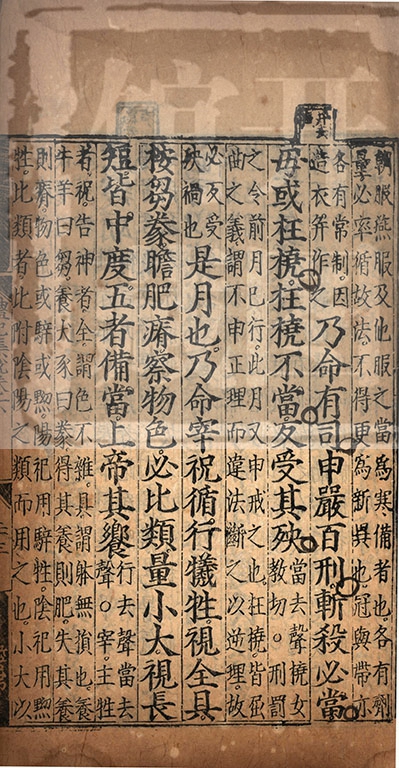 朝服燕服及他服之當為寒備者也各有劑
量必率循故法不得更為新異也冠與帶亦
各有常制因
造衣并作之
乃命有司申嚴百刑斬殺必當
毋或枉橈枉橈不當反受其殃
當去聲橈女
教切○刑罰
之令前月已行此月又申戒之也枉橈皆屈
曲之義謂不申正理而違法斷之以逆理故
必反受
殃禍也
是月也乃命宰祝循行犧牲視全具
按芻豢瞻肥瘠察物色必比類量小大視長
短皆中度五者備當上帝其饗
行去聲當去
聲○宰主牲
者祝告神者全謂色不雜具謂躰無損也養
牛羊曰芻養犬豕曰豢得其養則肥失其養
則瘠物色或騂或黝陽祀用騂牲陰祀用黝
牲比類者比附陰陽之類而用之也小大以